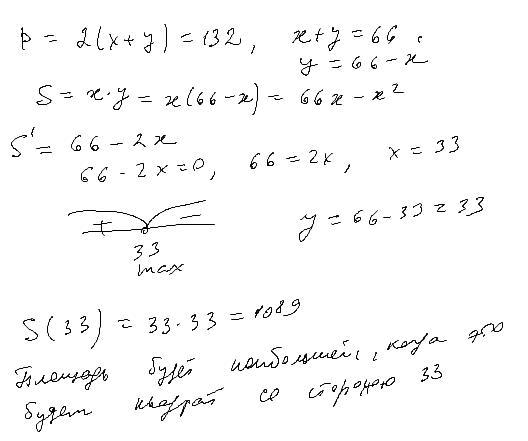 P = 2(x+y) = 132, x+y = 66.
y = 66-x
S = x·y = x(66-x) = 66x - x²
S' = 66 - 2x
66 - 2x = 0, 66 = 2x, x = 33
+ −
y = 66-33 = 33
33
max
S(33) = 33·33 = 1089
Площадь будет наибольшей, когда это
будет квадрат со стороною 33